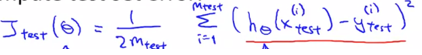 J_test(θ) = 1/(2m_test) Σ_{i=1}^{m_test} (h_θ(x_test^(i)) - y_test^(i))²